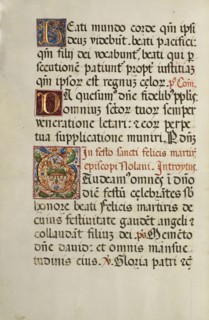 Beati mundo corde qm̄ ipsi
deus videbūt. beati pacifici:
qm̄ filij dei vocabunt̄. beati qui p̱
secutionē patiunt̄ propt̄ iustitiā:
qm̄ ipsor̄ est regnuȝ celor̄. p̱ Com̄.
DA quesum̄ dn̄e fidelib̄ pplis
omniuȝ sctor̄ tuor̄ semper
veneratione letari: et eor̄ perpe
tua supplicatione muniri. P dn̄ȝ
In festo sancti felicis martir̄
episcopi Nolani. Introytus.
GAudeam̄ omnes ī dn̄o
diē festū celebrātes sb̄
honore beati Felicis martiris de
cuius festiuitate gaudēt angeli et
collaudāt filiuȝ dei. p̄s Memēto
dn̄e dauid: et omnis mansue
tudinis eius. v̄. Gloria patri et